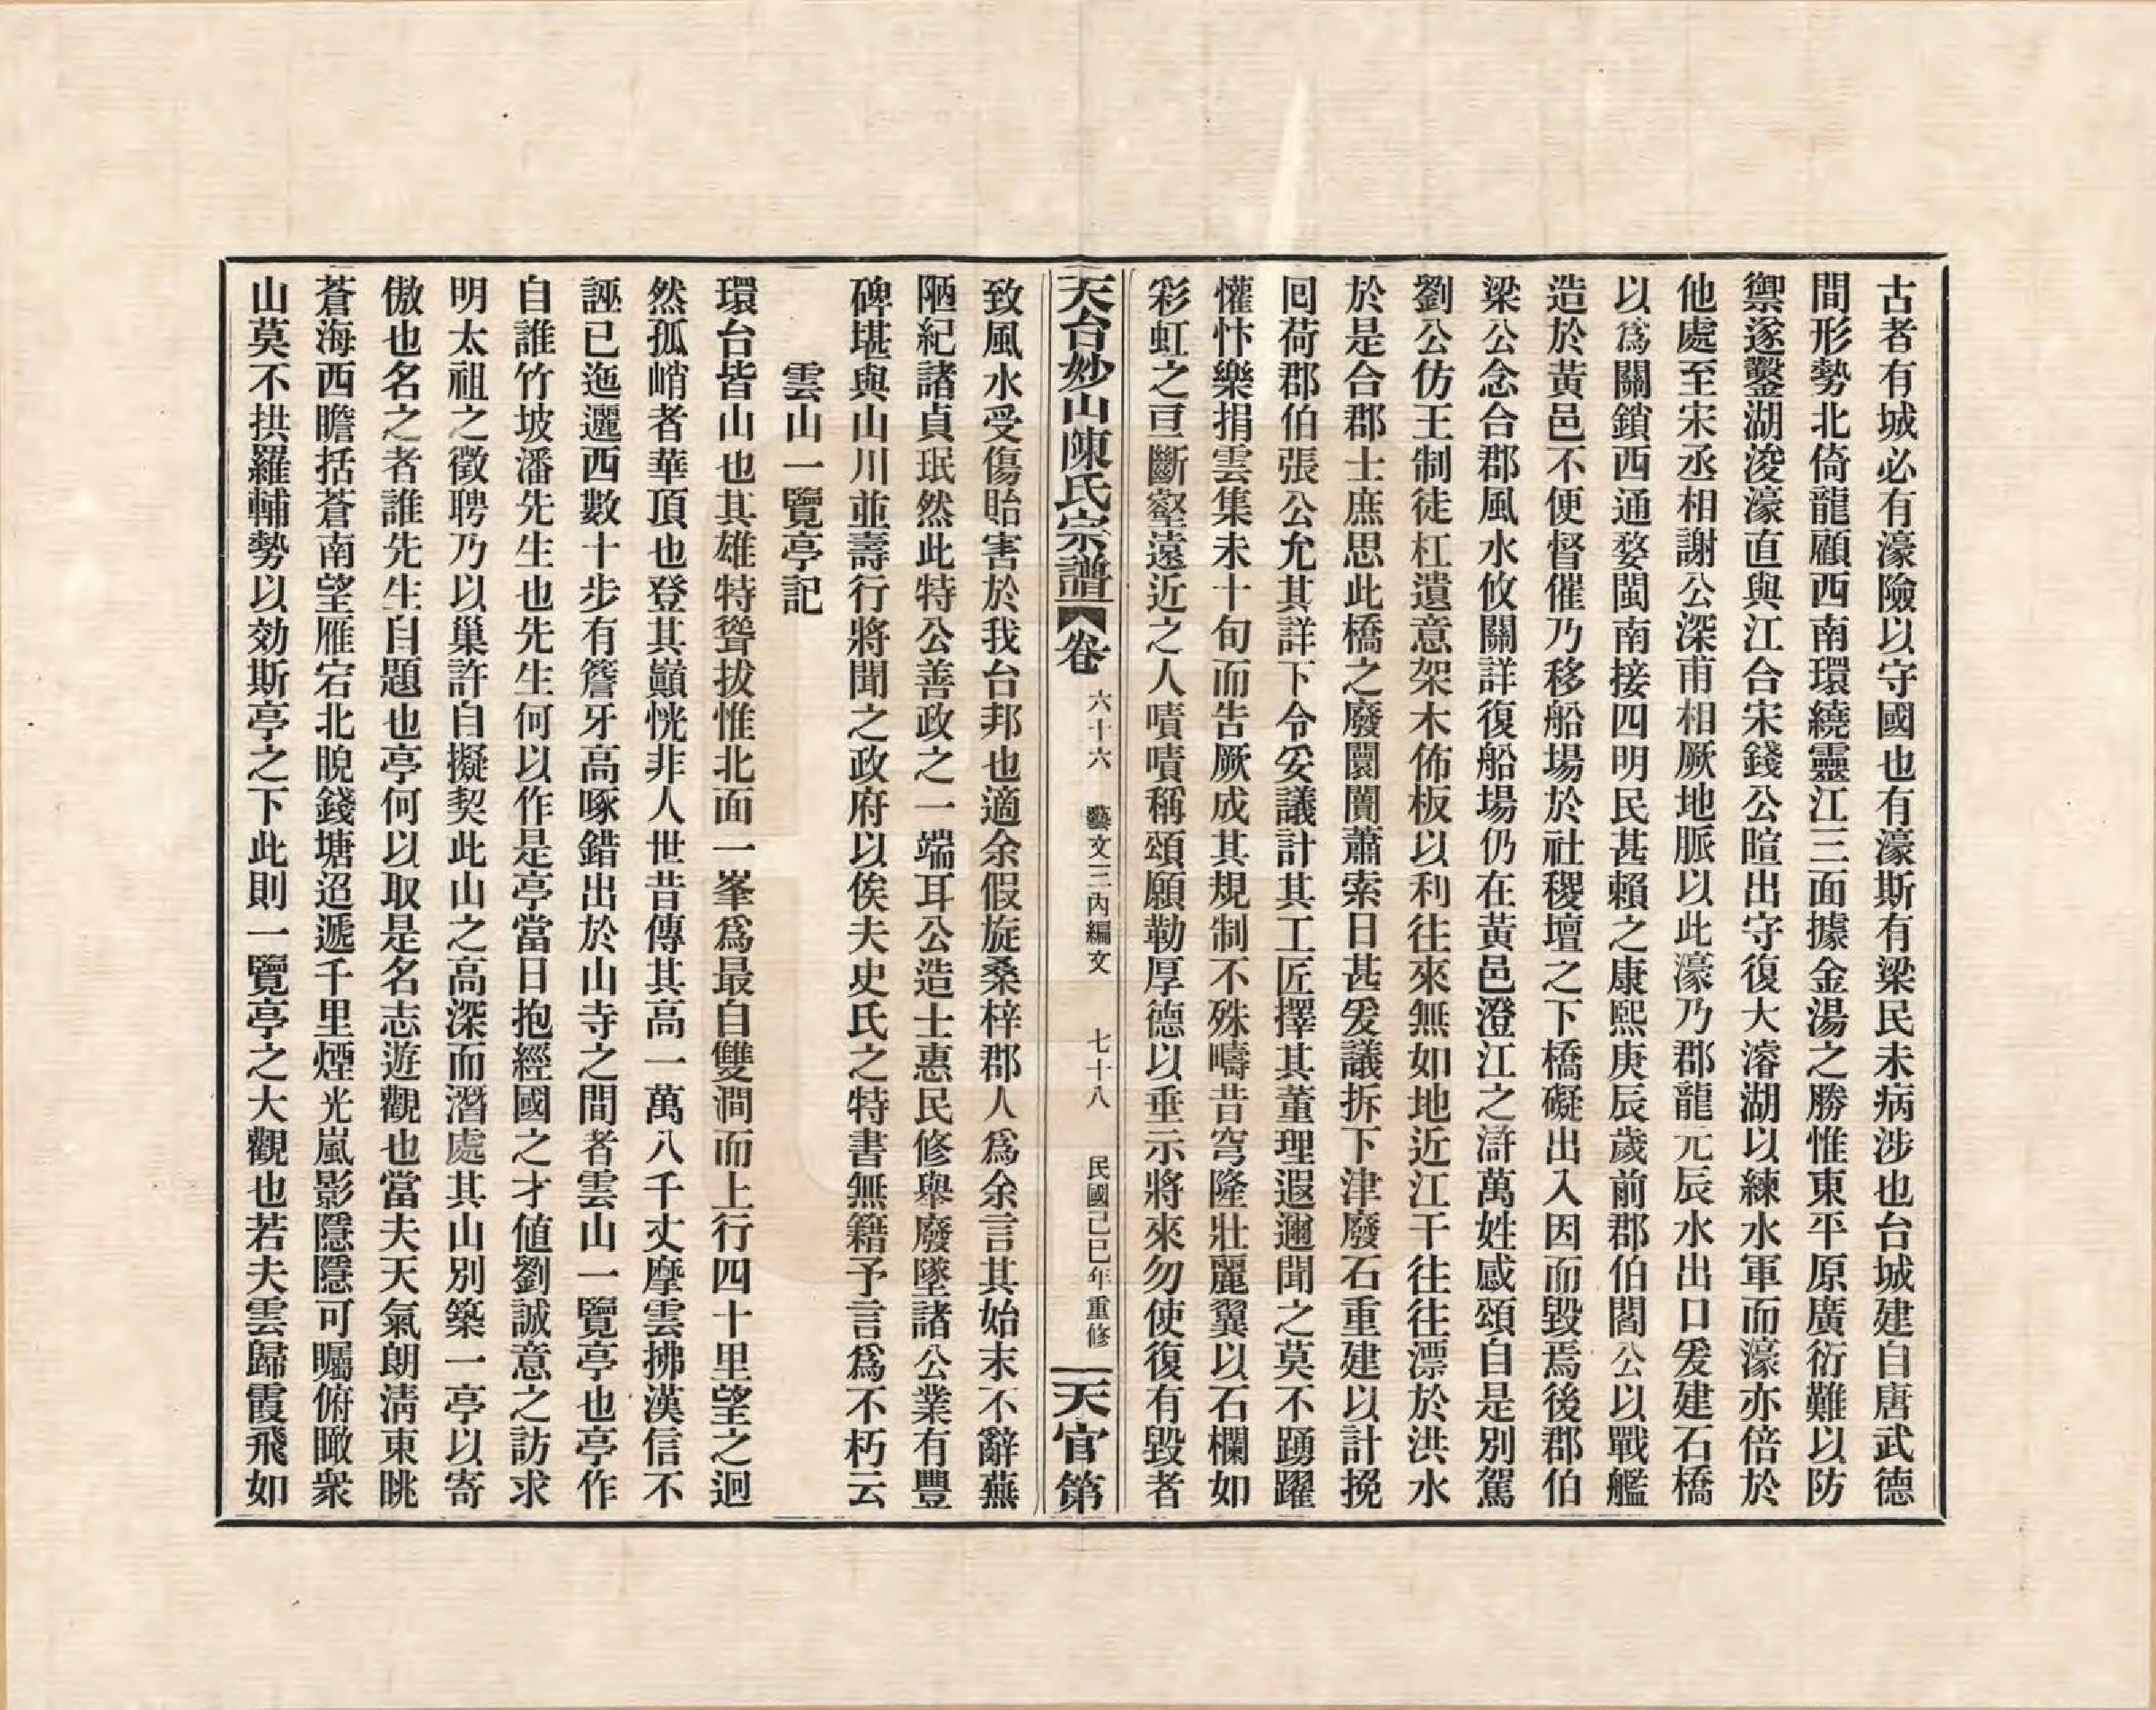 古者有城必有濠險以守國也有濠斯有梁民未病涉也台城建自唐武德
間形勢北倚龍顧西南環繞靈江三面據金湯之勝惟東平原廣衍難以防
禦遂鑿湖浚濠直與江合宋錢公暄出守復大濬湖以練水軍而濠亦倍於
他處至宋丞相謝公深甫相厥地脈以此濠乃郡龍元辰水出口爰建石橋
以爲關鎖西通婺閩南接四明民甚賴之康熙庚辰歲前郡伯閻公以戰艦
造於黃邑不便督催乃移船場於社稷壇之下橋礙出入因而毀焉後郡伯
梁公念合郡風水攸關詳復船場仍在黃邑澄江之滸萬姓感頌自是別駕
劉公仿王制徒杠遺意架木佈板以利往來無如地近江干往往漂於洪水
於是合郡士庶思此橋之廢闤闠蕭索日甚爰議拆下津廢石重建以計挽
回荷郡伯張公允其詳下令妥議計其工匠擇其董理遐邇聞之莫不踴躍
懽忭樂捐雲集未十旬而告厥成其規制不殊疇昔穹隆壯麗翼以石欄如
彩虹之亘斷壑遠近之人嘖嘖稱頌願勒厚德以垂示將來勿使復有毀者
天台妙山陳氏宗譜 卷 六十六 藝文三內編文 七十八 民國己巳年重修 天官第
致風水受傷貽害於我台邦也適余假旋桑梓郡人爲余言其始末不辭蕪
陋紀諸貞珉然此特公善政之一端耳公造士惠民修舉廢墜諸公業有豐
碑堪與山川並壽行將聞之政府以俟夫史氏之特書無籍予言爲不朽云
雲山一覽亭記
環台皆山也其雄特聳拔惟北面一峯爲最自雙澗而上行四十里望之迥
然孤峭者華頂也登其巔恍非人世昔傳其高一萬八千丈摩雲拂漢信不
誣已迤邐西數十步有簷牙高啄錯出於山寺之間者雲山一覽亭也亭作
自誰竹坡潘先生也先生何以作是亭當日抱經國之才値劉誠意之訪求
明太祖之徵聘乃以巢許自擬契此山之高深而潛處其山別築一亭以寄
傲也名之者誰先生自題也亭何以取是名志遊觀也當夫天氣朗淸東眺
蒼海西瞻括蒼南望雁宕北睨錢塘迢遞千里煙光嵐影隱隱可矚俯瞰衆
山莫不拱羅輔勢以効斯亭之下此則一覽亭之大觀也若夫雲歸霞飛如